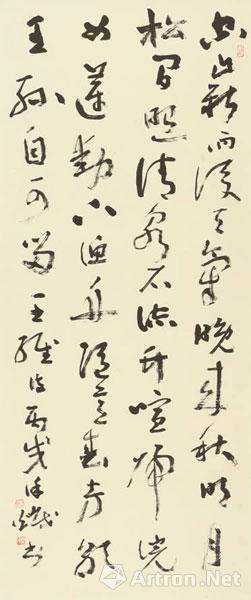 空山新雨後天氣晚來秋明月
松間照清泉石上流竹喧歸浣
女蓮動下漁舟隨意春芳歇
王孫自可留王維詩丙戌書
Artron.Net